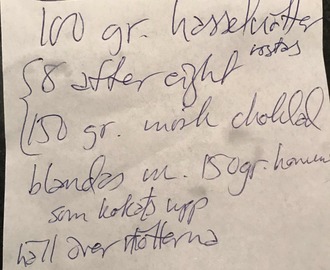 100 gr. hasselnötter
rostas
8 after eight
150 gr. mörk choklad
blandas m. 150 gr.
som kokats upp
häll över nötterna